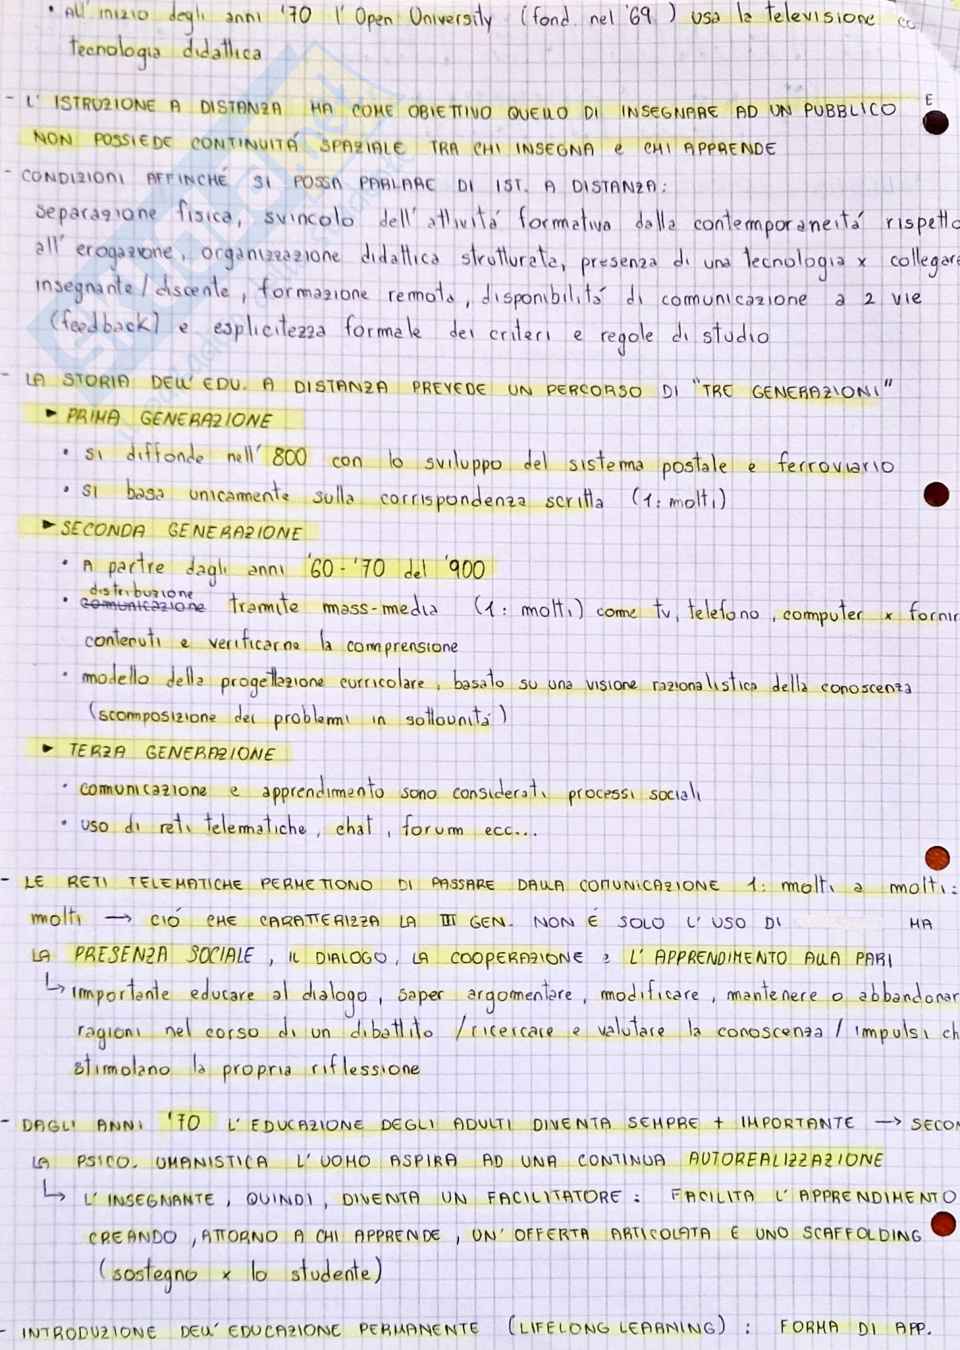 • All'inizio degli anni '70 l'Open University (fond. nel '69) usa la televisione co
tecnologia didattica
- L'ISTRUZIONE A DISTANZA HA COME OBIETTIVO QUELLO DI INSEGNARE AD UN PUBBLICO E
NON POSSIEDE CONTINUITÁ SPAZIALE TRA CHI INSEGNA e CHI APPRENDE
- CONDIZIONI AFFINCHÉ SI POSSA PARLARE DI IST. A DISTANZA:
separazione fisica, svincolo dell'attivitá formativa dalla contemporaneitá rispetto
all'erogazione, organizzazione didattica strutturata, presenza di una tecnologia x collegare
insegnante/discente, formazione remota, disponibilitá di comunicazione a 2 vie
(feedback) e esplicitezza formale dei criteri e regole di studio
- LA STORIA DELL'EDU. A DISTANZA PREVEDE UN PERCORSO DI "TRE GENERAZIONI"
► PRIMA GENERAZIONE
• si diffonde nell'800 con lo sviluppo del sistema postale e ferroviario
• si basa unicamente sulla corrispondenza scritta (1: molti)
► SECONDA GENERAZIONE
• A partre dagli anni '60-'70 del '900
distribuzione
• comunicazione tramite mass-media (1: molti) come tv, telefono, computer x fornir
contenuti e verificarne la comprensione
• modello della progettazione curricolare, basato su una visione razionalistica della conoscenza
(scomposizione dei problemi in sottounitá)
► TERZA GENERAZIONE
• comunicazione e apprendimento sono considerati processi sociali
• uso di reti telematiche, chat, forum ecc...
- LE RETI TELEMATICHE PERMETTONO DI PASSARE DALLA COMUNICAZIONE 1: molti a molti:
molti → CIÓ CHE CARATTERIZZA LA III GEN. NON É SOLO L'USO DI MA
LA PRESENZA SOCIALE, IL DIALOGO, LA COOPERAZIONE e L'APPRENDIMENTO ALLA PARI
↳ importante educare al dialogo, saper argomentare, modificare, mantenere o abbandonar
ragioni nel corso di un dibattito /ricercare e valutare la conoscenza / impulsi ch
stimolano la propria riflessione
- DAGLI ANNI '70 L'EDUCAZIONE DEGLI ADULTI DIVENTA SEMPRE + IMPORTANTE → SECON
LA PSICO. UMANISTICA L'UOMO ASPIRA AD UNA CONTINUA AUTOREALIZZAZIONE
↳ L'INSEGNANTE, QUINDI, DIVENTA UN FACILITATORE: FACILITA L'APPRENDIMENTO
CREANDO, ATTORNO A CHI APPRENDE, UN'OFFERTA ARTICOLATA E UNO SCAFFOLDING
(sostegno x lo studente)
- INTRODUZIONE DELL'EDUCAZIONE PERMANENTE (LIFELONG LEARNING): FORMA DI APP.